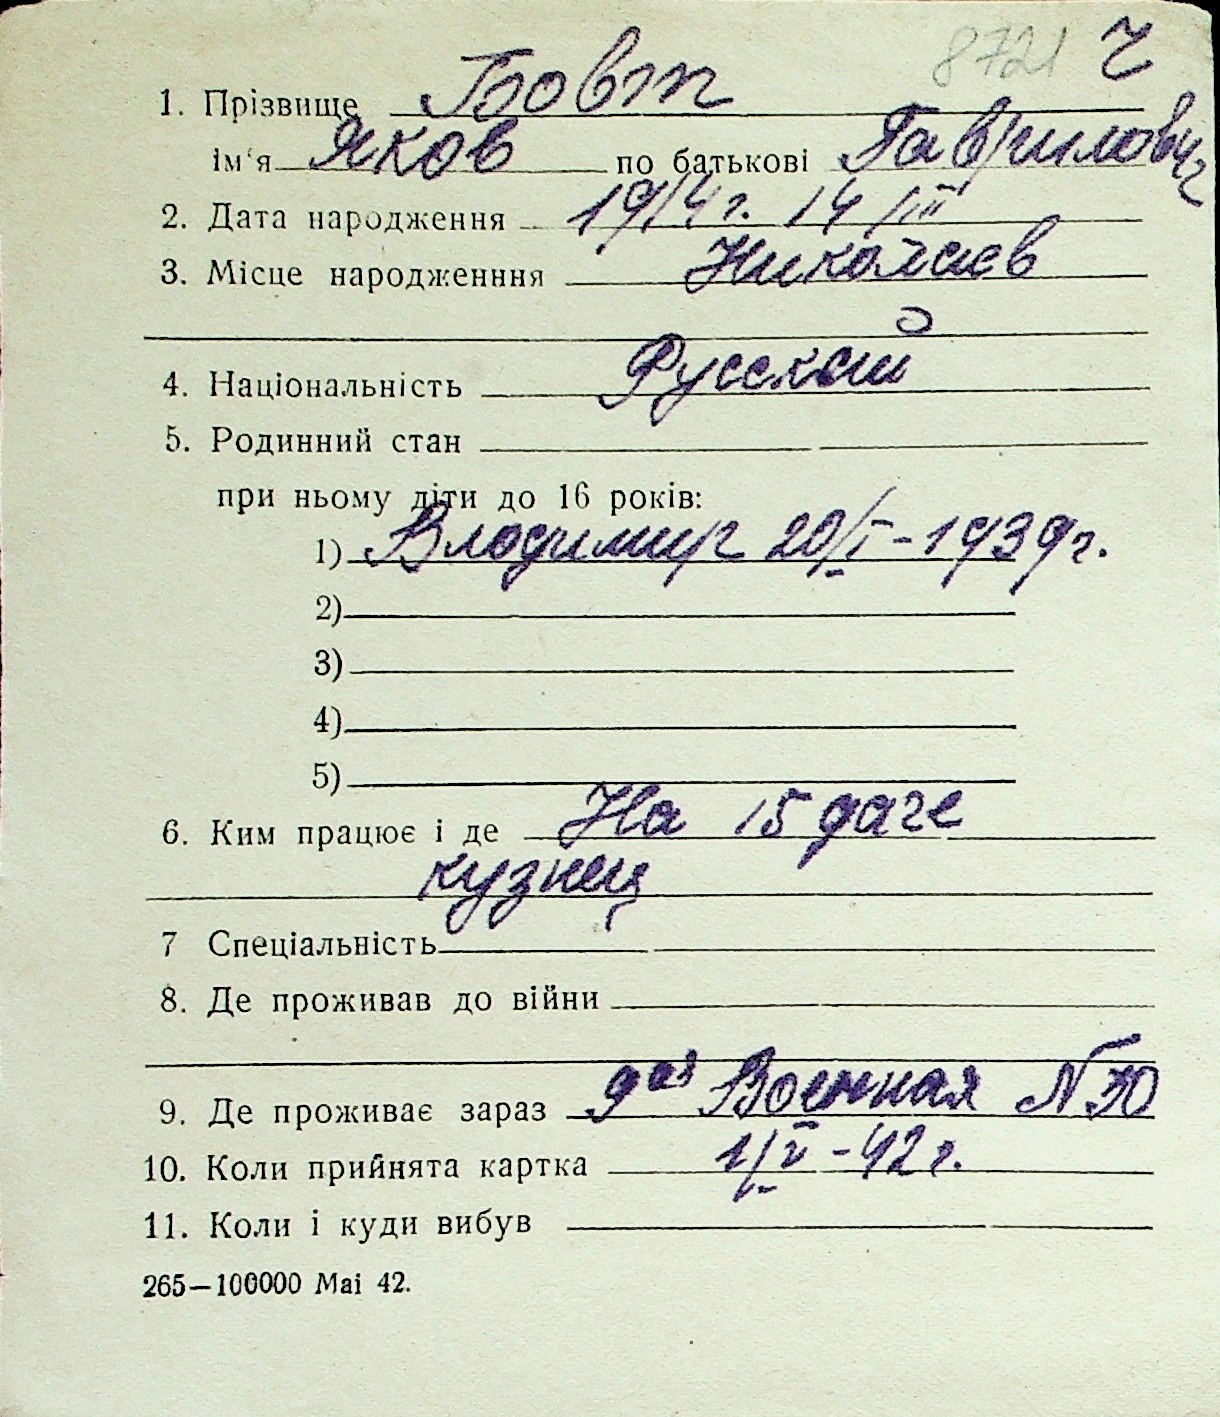 8721 Ч
1. Прізвище Бовт
ім'я Яков по батькові Гаврилович
2. Дата народження 1914 г. 14/III
3. Місце народженння Николаев
4. Національність Русский
5. Родинний стан
при ньому діти до 16 років:
1) Владимир 20/I-1939г.
2)
3)
4)
5)
6. Ким працює і де На 15 даче
кузнец
7 Спеціальність
8. Де проживав до війни
9. Де проживає зараз 9ая Военная N
10. Коли прийнята картка 1/V-42г.
11. Коли і куди вибув
265—100000 Mai 42.